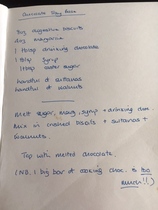 Chocolate Tray Bake
8oz digestive biscuits
4oz margarine
1 tbsp drinking chocolate
1 tbsp syrup
1 tbsp caster sugar
handful of sultanas
handful of walnuts
Melt sugar, marg, syrup + drinking choc
Mix in crushed biscuits + sultanas +
walnuts.
Top with melted chocolate.
(NB. 1 big bar of cooking choc. is too
much!!)